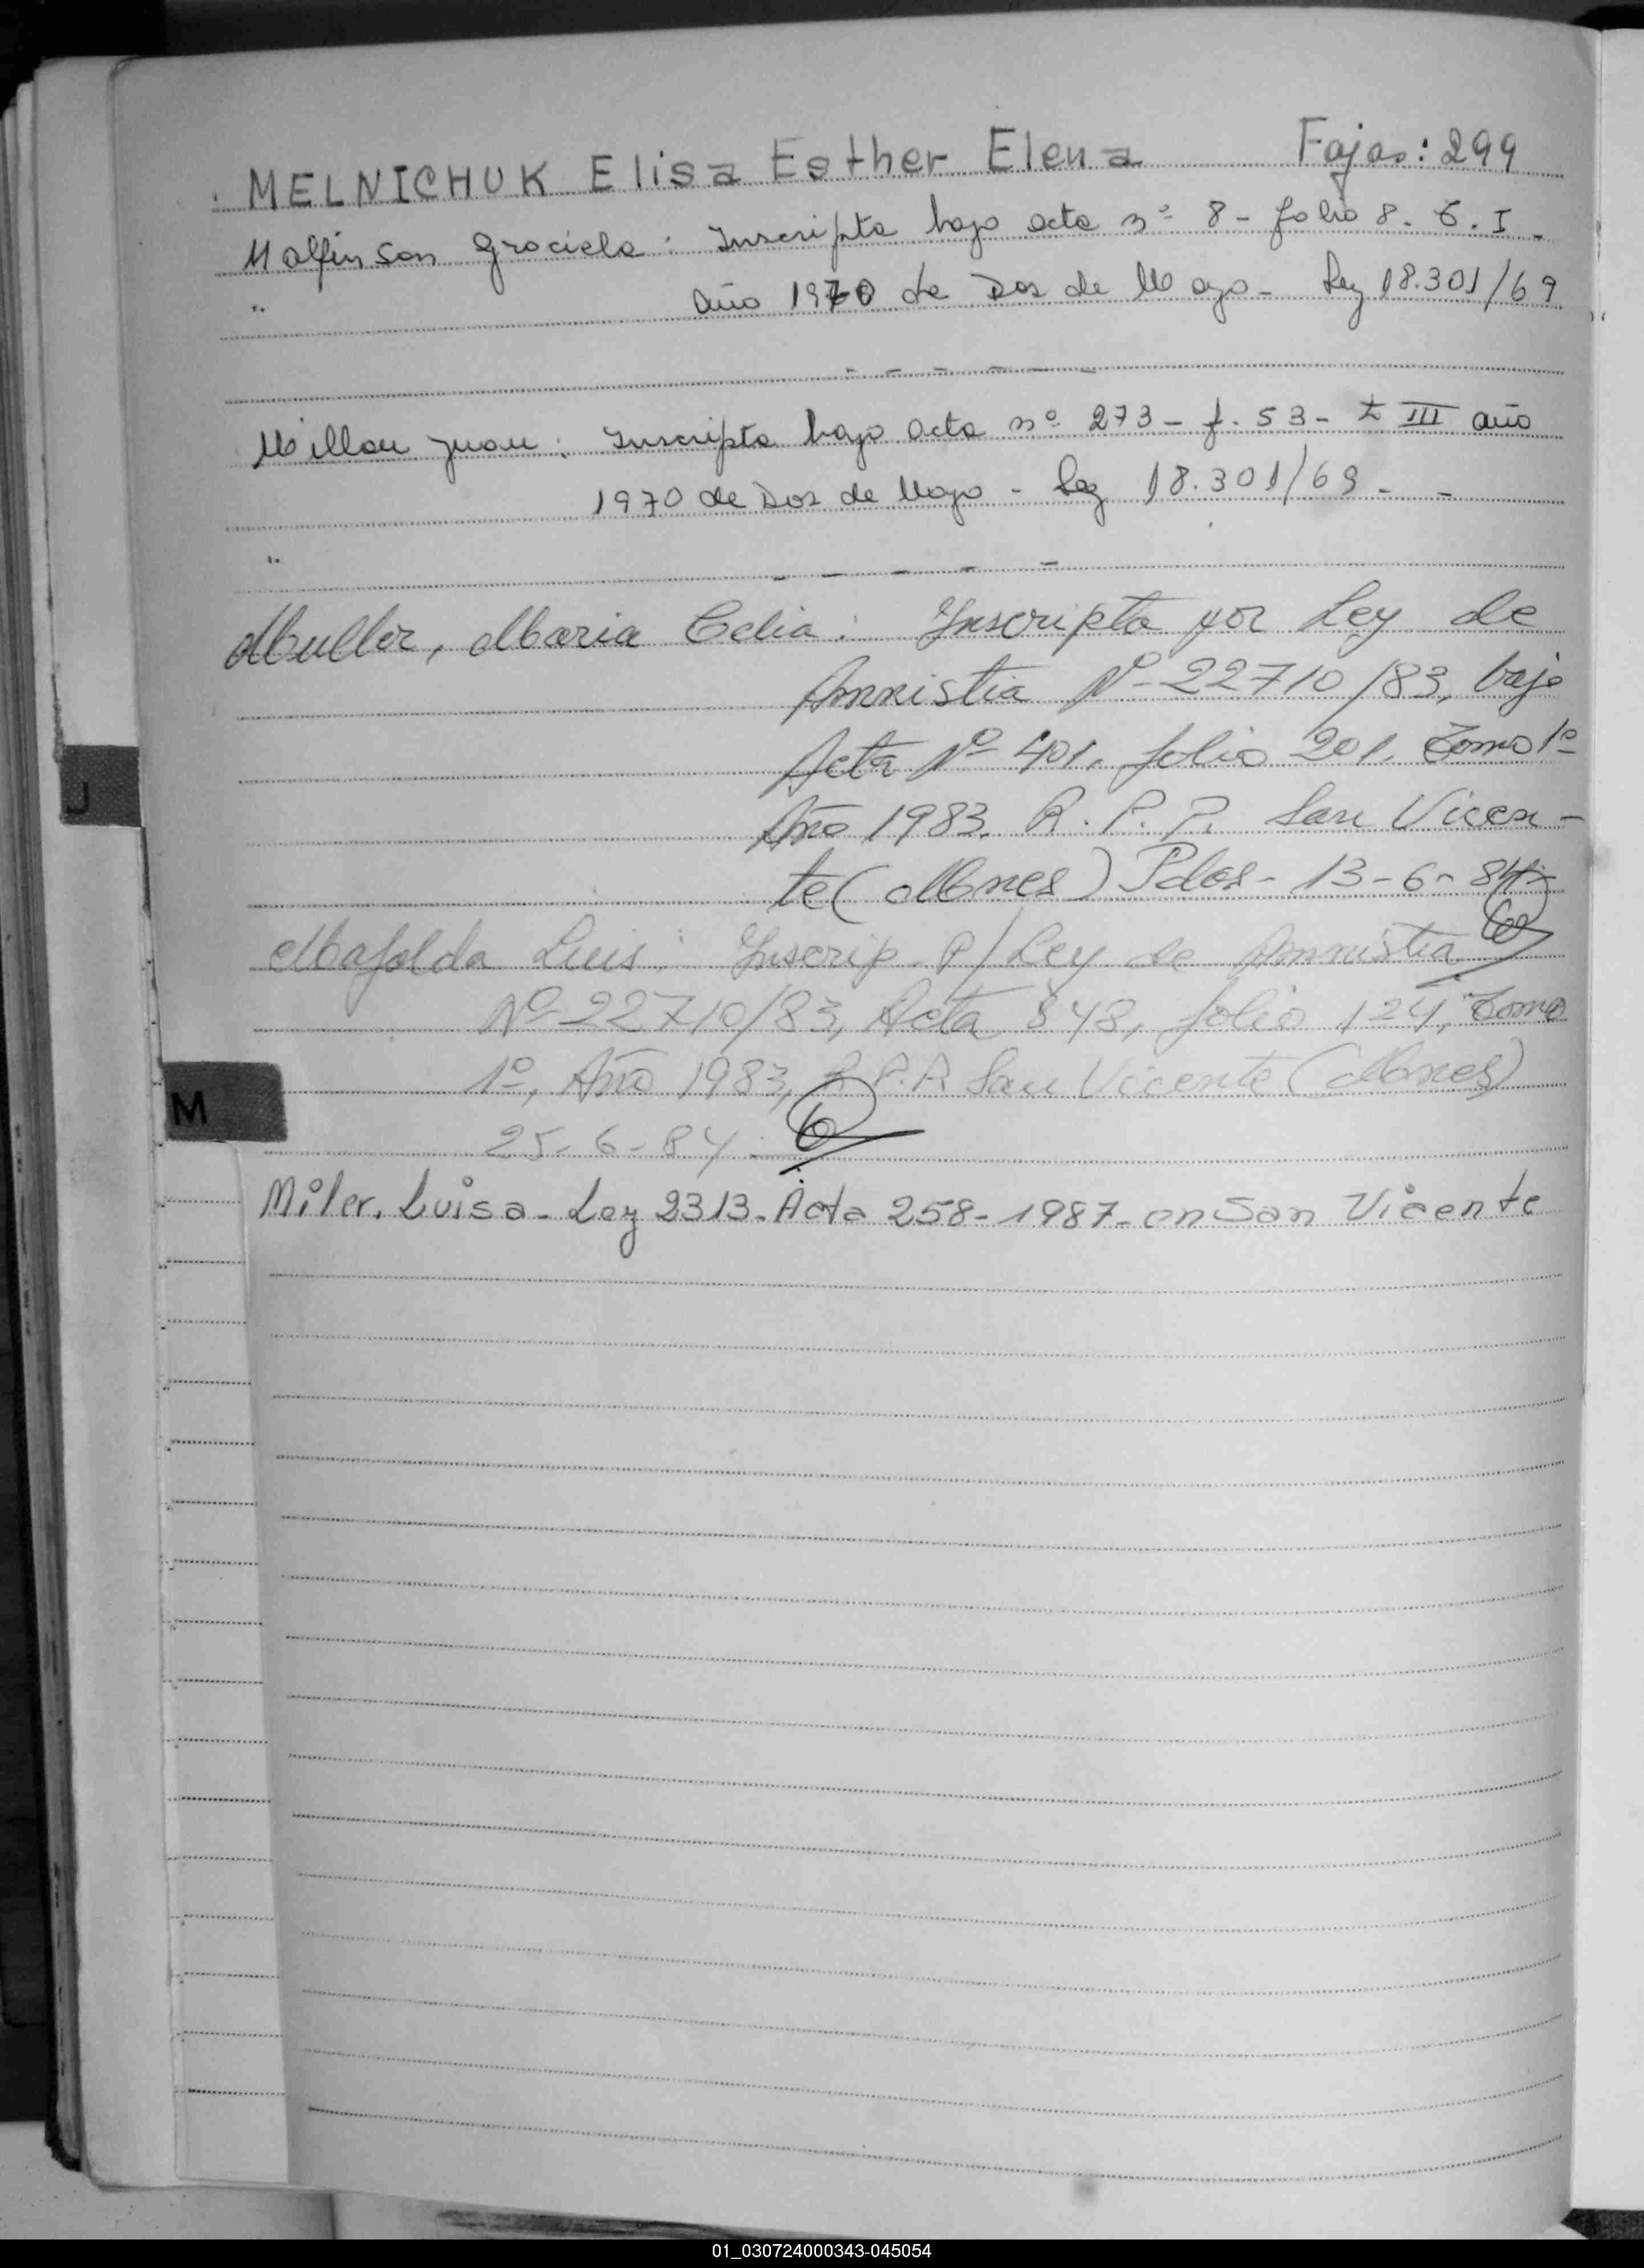 MELNICHUK Elisa Esther Elena Fojas: 299
Malfinson Graciela: Inscripta bajo acta nº 8 - folio 8. T. I -
año 1970 de Dos de Mayo - Ley 18.301/69
Millan Juan: Inscripta bajo acta nº 273 - f. 53 - t III año
1970 de Dos de Mayo - Ley 18.301/69 - -
Muller, Maria Celia: Inscripta por Ley de
Amnistia Nº 22710/83, bajo
Acta Nº 401, folio 201, Tomo 1º
Año 1983. R. P. P. San Vicen-
te (Mnes) Pdos - 13-6-84
Mafalda Luis: Inscrip. P/Ley de Amnistia
Nº 22710/83, Acta 848, folio 124, Tomo
1º, Año 1983, R.P.P. San Vicente (Mnes)
25-6-84.
Miler, Luisa - Ley 2313 - Acta 258 - 1987 - en San Vicente
J
M
01_030724000343-045054